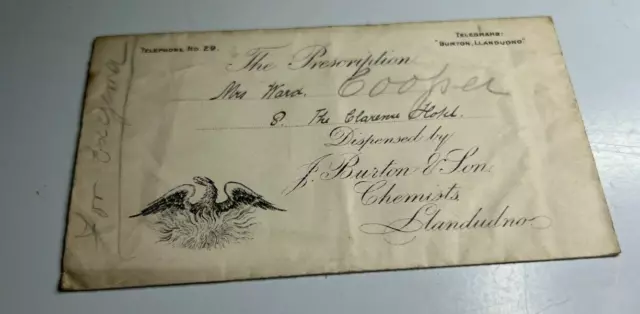 TELEPHONE, NO. 29.
TELEGRAMS:
"BURTON, LLANDUDNO"
The Prescription
Mrs Ward. Cooper
8. The Clarence Hotel.
Dispensed by
J. Burton & Son
Chemists,
Llandudno
For Eczema